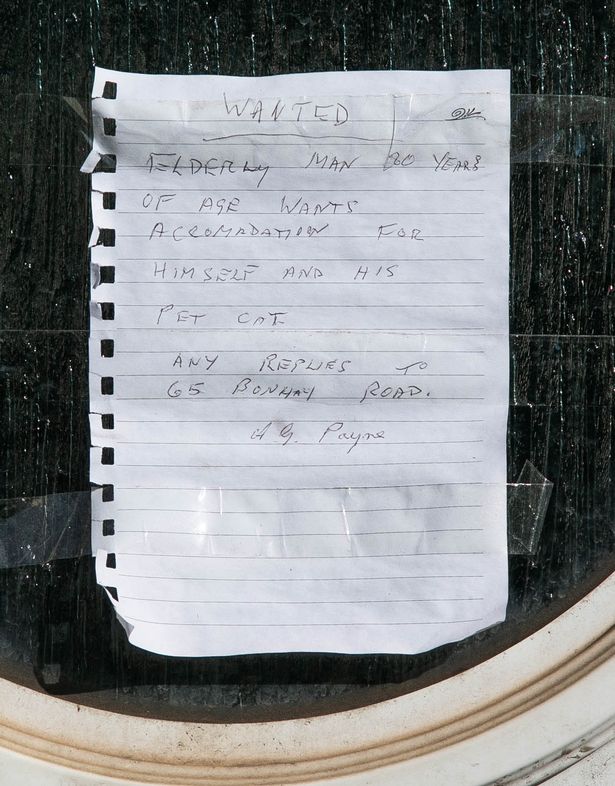 WANTED
ELDERLY MAN 80 YEARS
OF AGE WANTS
ACCROMADATION FOR
HIMSELF AND HIS
PET CAT
ANY REPLIES TO
65 BONHAY ROAD.
A G. Payne